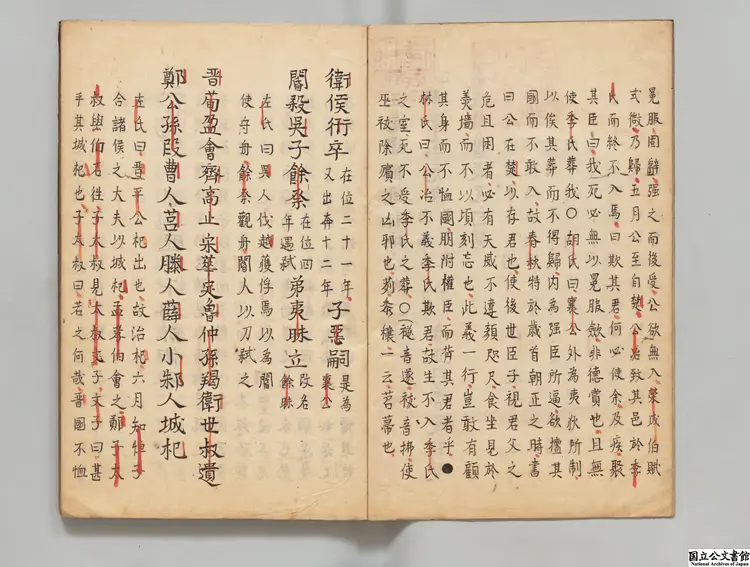 冕服固辭强之而後受公欲無入榮成伯賦
式微乃歸五月公至自楚公冶致其邑於季
氏而終不入焉曰欺其君何必使余及疾聚
其臣曰我死必無以冕服斂非德賞也且無
使季氏葬我○胡氏曰襄公外為夷狄所制
以俟其葬而不得歸内為强臣所逼欲擅其
國而不敢入故春秋特於歳首朝正之時書
曰公在楚以存君也使後世臣子視君父之
危且困者必有天威不違顔咫尺食坐見於
羮墻而不以頃刻忘也此義一行豈敢有顧
其身而不恤國朋附權臣而背其君者乎●
林氏曰公冶不義季氏欺君故生不入季氏
之室死不受季氏之葬○祓音遂被音拂使
巫祓除殯之凶邪也茢黍穰一云苕帚也
衛侯衎卒在位二十一年又出奔十二年子惡嗣是為襄公
閽殺吳子餘祭在位四年遇弒弟夷昧立改名餘昧
左氏曰吳人伐越獲俘焉以為閽
使守舟餘祭觀舟閽人以刀弒之
晉荀盈會齊高止宋華定魯仲孫羯衛世叔遺
鄭公孫段曹人莒人滕人薛人小邾人城杞
左氏曰晋平公杞出也故治杞六月知悼子
合諸侯之大夫以城杞孟孝伯會之鄭子大
叔與伯石徃子大叔見大叔文子文子曰甚
乎其城杞也子大叔曰若之何哉晋國不恤
国立公文書館
National Archives of Japan